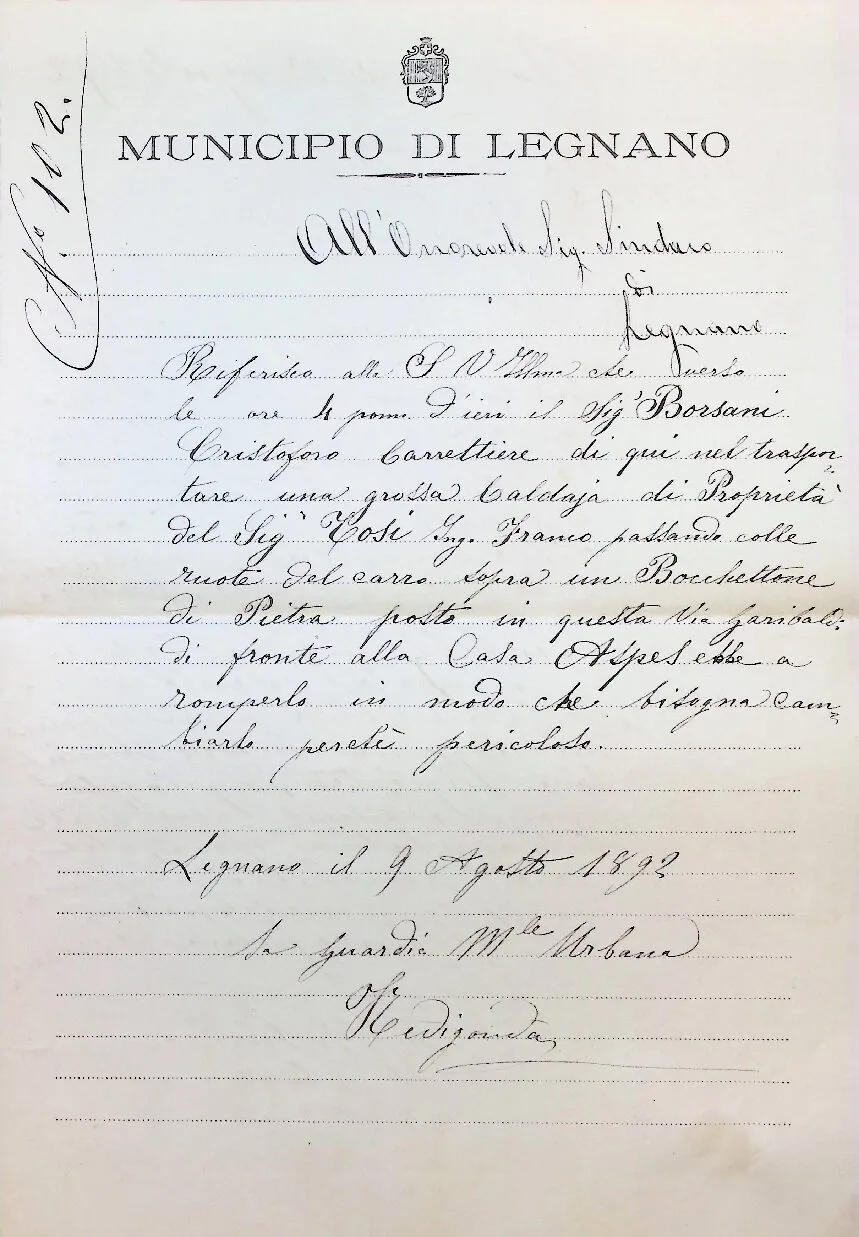 N.º 102.
MUNICIPIO DI LEGNANO
All'Onorevole Sig. Sindaco
di
Legnano
Riferisco alla S V Illma che verso
le ore 4 pom. d'ieri il Sigr Borsani
Cristoforo Carrettiere di qui nel traspor-
tare una grossa Caldaja di Proprietà
del Sigr Tosi Ing. Franco passando colle
ruote del carro sopra un Bocchettone
di Pietra posto in questa Via Garibaldi
di fronte alla Casa Aspes ebbe a
romperlo in modo che bisogna cam-
biarlo perchè pericoloso.
Legnano il 9 Agosto 1892
La Guardia Mle Urbana